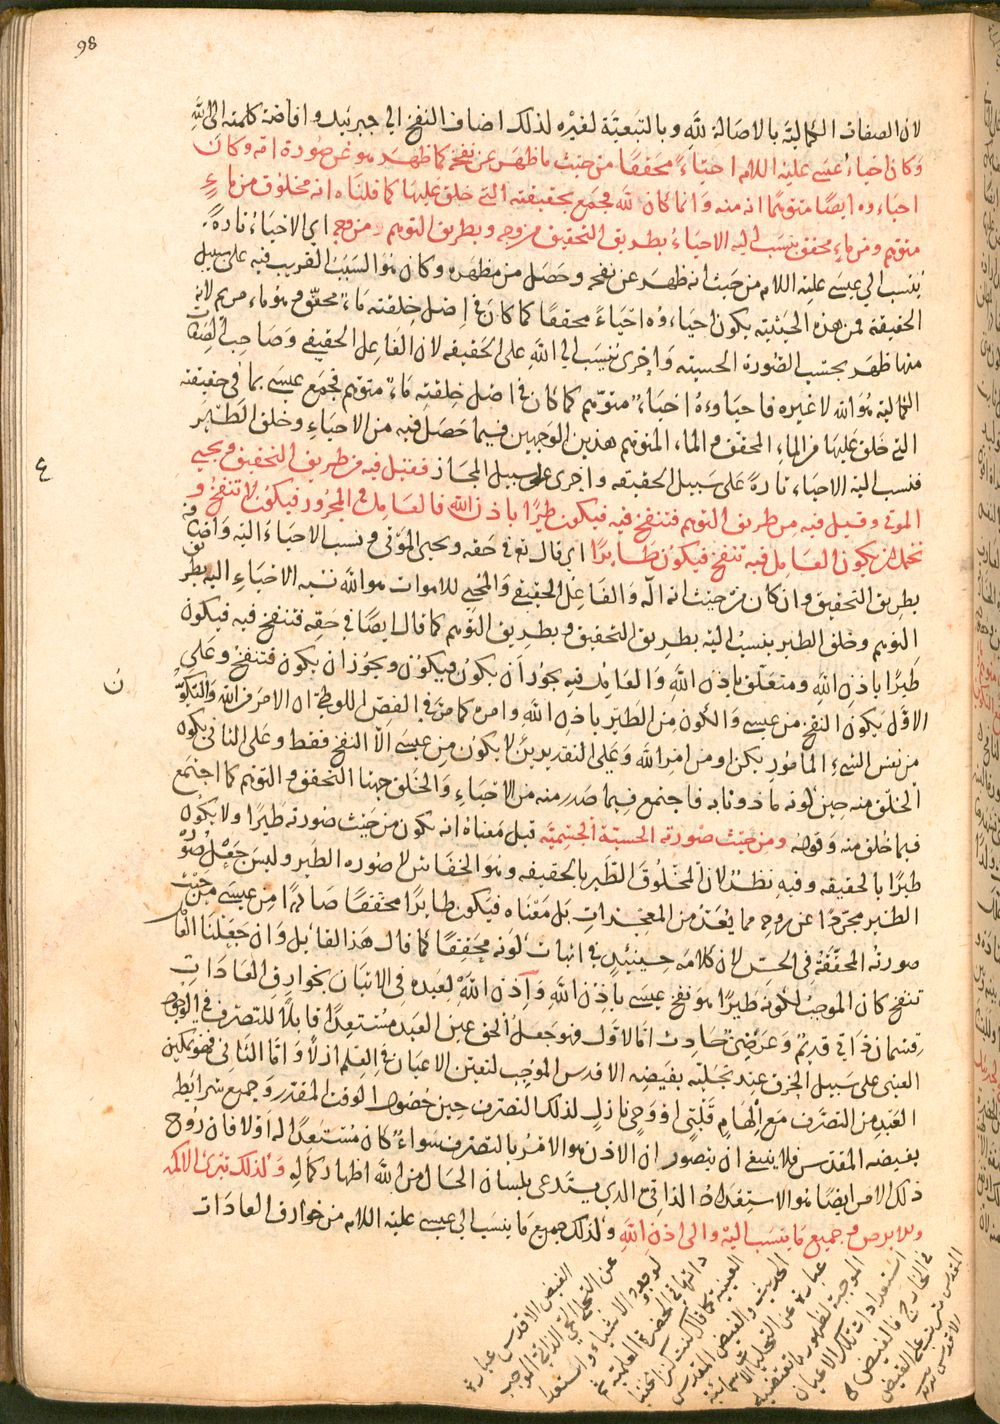 98
لان الصفات الكمالية بالاصالة لله وبالتبعية لغيره لذلك اضاف النفخ الى جبرئيل وافاضة كلمته الى الله
وكان احياء عيسى عليه اللام احياءً محققًا من حيث ما ظهر عن نفخه كما ظهر هو عن صورة امه وكان
احياءه ايضًا متوهمًا انه منه وانما كان لله فجمع بحقيقته التي خلق عليها كما قلناه انه مخلوق من ماءٍ
متوهم ومن ماءٍ محقق ينسب اليه الاحياء بطريق التحقيق من وجه وبطريق التوهم من وجه اى الاحياء تارةً
ينسب الى عيسى عليه اللام من حيث انه ظهر عن نفخه وحصل من مظهره وكان هو السبب القريب فيه على سبيل
الحقيقة فمن هذه الحيثية يكون احياءوه احياءً محققًا كما كان فى اصل خلقته ماء محقق وهو ماء مريم لانه
منها ظهر بحسب الصورة الحسية واخرى ينسب الى الله على الحقيقه لان الفاعل الحقيقى وصاحب الصفات
الكمالية هو الله لا غيره فاحياوءه احياء متوهم كما كان فى اصل خلقته ماء متوهم فجمع عيسى بما فى حقيقته
التى خلق عليها من الماء المحقق والماء المتوهم هذين الوجهين فيما حصل فيه من الاحياء وخلق الطير
فنسب اليه الاحياء تارة على سبيل الحقيقه واخرى على سبيل المجاز فقيل فيه من طريق التحقيق ويحيى
ع
الموتى وقيل فيه من طريق التوهم فتنفخ فيه فيكون طيرًا باذن الله فالعامل فى المجرور فيكون لا تنفخ و
يحتمل ان يكون العامل فيه تنفخ فيكون طايرًا اى قال تع فى حقه ويحيى الموتى ونسب الاحياء اليه واضافه
بطريق التحقيق وان كان من حيث انه آلة والفاعل الحقيقى والمحيى للاموات هو الله نسبه الاحياء اليه بطريق
التوهم وخلق الطير ينسب اليه بطريق التحقيق وبطريق التوهم كما قال ايضًا فى حقه فتنفخ فيه فيكون
طيرًا باذن الله ومتعلق باذن الله والعامل فيه يجوز ان يكون فيكون ويجوز ان يكون فتنفخ وعلى
ن
الاول يكون النفخ من عيسى والكون من الطير باذن الله وامره كما مر فى الفص اللوطى ان الامر من الله والتكون
من نفس الشىء المأمور بكن او من امر الله وعلى التقديرين لا يكون من عيسى الا النفخ فقط وعلى الثانى يكون
الخلق منه حين كونه ماذونا به فاجتمع فيما صدر منه من الاحياء والخلق جهتا التحقق والتوهم كما اجتمع
فيما خُلق منه وقوله ومن حيث صورته الحسية الجسمية قيل معناه انه يكون من حيث صورته طيرًا ولا يكون
طيرًا بالحقيقه وفيه نظر لان المخلوق الطير بالحقيقه وهو الخفاش لا صورة الطير وليس جعل صورة
الطير مجردًا عن روحه مما يعد من المعجزات بل معناه فيكون طايرًا محققًا صادرًا من عيسى من حيث
صورته المحققة فى الحس لان كلامه حينئذٍ فى اثبات كونه محققًا كما قال هذا القايل وان جعلنا العامل
تنفخ كان الموجب لكونه طيرًا هو نفخ عيسى باذن الله وإذن الله لعبده فى الاتيان بخوارق العادات
قسمان ذاتى قديم وعرضى حادث اما الاول فهو جعل الحق عين العبد مستعدًا قابلًا للتصرف فى الوجود
العينى على سبيل الخرق عند تجليه بفيضه الاقدس الموجب لتعين الاعيان فى العلم ازلًا واما الثانى فهو تمكين
العبد من التصرف مع الهام قلبى او وحى نازل لذلك التصرف حين حضور الوقت المقدر وجميع شرايط
بفيضه المقدس فلا ينبغى ان يتصور ان الاذن هو الامر بالتصرف سواء كان مستعدًا له اولا فان روح
ذلك الامر ايضًا هو الاستعداد الذاتى الذى يستدعى بلسان الحال من الله اظهار كماله وكذلك تبرئ الاكمه
والابرص وجميع ما ينسب اليه والى اذن الله وكذلك جميع ما ينسب الى عيسى عليه اللام من خوارق العادات
الفيض الاقدس عبارة
عن التجلى الحبى الذاتى الموجب
لوجود الاشياء واستعدا
داتها فى الحضرة العلمية ثم
العينية كما قال كنت كنزا مخفيا
الحديث والفيض المقدس
عبارة عن التجليات الاسمائية
الموجبة لظهور ما تقتضيه
استعدادات تلك الاعيان
فى الخارج فالفيض
المقدس مترتب على الفيض
الاقدس